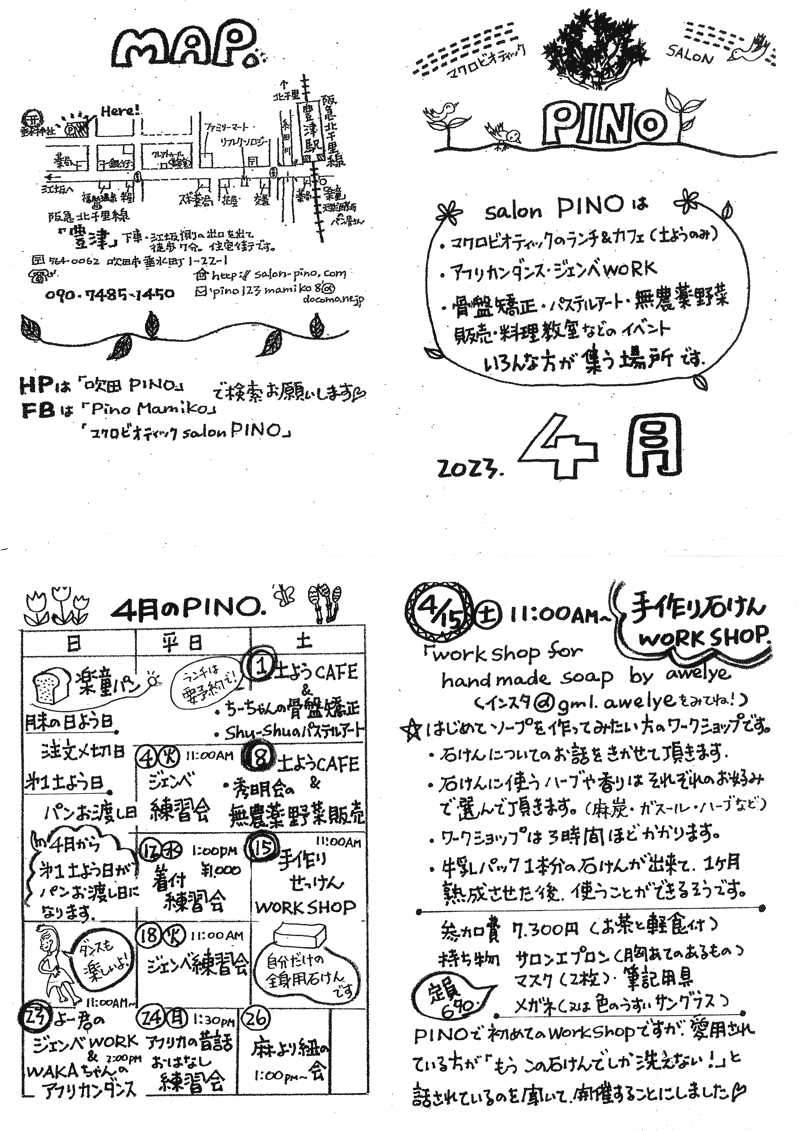 MAP.
Here!
ファミリーマート
リフレクソロジー
北千里
豊津駅
阪急北千里線
江坂へ
阪急北千里線
「豊津」下車・江坂側の出口を出て
徒歩7分。住宅街です。
564-0062 吹田市垂水町1-22-1
http://salon-pino.com
090-7485-1450
pino123mamiko8@
docomo.ne.jp
HPは「吹田 PINO」
で検索お願いします♡
FBは「Pino Mamiko」
「マクロビオティック salon PINO」
マクロビオティック
SALON
PINO
salon PINO は
・マクロビオティックのランチ&カフェ(土ようのみ)
・アフリカンダンス・ジェンベWORK
・骨盤矯正・パステルアート・無農薬野菜
販売・料理教室などのイベント
いろんな方が集う場所です.
2023. 4月
4月のPINO.
日 平日 土
楽童パン
月末の日よう日
注文〆切日
第1土よう日
パンお渡し日
4月から
第1土よう日が
パンお渡し日に
なります.
ランチは
要予約で!
① 土ようCAFE
&
・ちーちゃんの骨盤矯正
・Shu-Shuのパステルアート
④火 11:00AM
ジェンベ
練習会
⑧ 土ようCAFE
&
・秀明会の
無農薬野菜販売
⑫水 1:00PM
着付 ¥1000
練習会
⑮ 11:00AM
手作り
せっけん
WORKSHOP
ダンスも
楽しいよ!
⑱火 11:00AM
ジェンベ練習会
自分だけの
全身用石けん
です
11:00AM~
㉓ よー君の
ジェンベWORK
& 2:00PM
WAKAちゃんの
アフリカンダンス
㉔月 1:30PM
アフリカの昔話
おはなし
練習会
㉖
麻より紐の
会
1:00PM~
4/15 土 11:00AM~
手作り石けん
WORK SHOP.
「work shop for
hand made soap by awelye
(インスタ@gml.awelyeをみてね!)
☆はじめてソープを作ってみたい方のワークショップです。
・石けんについてのお話をきかせて頂きます.
・石けんに使うハーブや香りはそれぞれのお好み
で選んで頂きます。(麻炭・ガスール・ハーブなど)
・ワークショップは3時間ほどかかります。
・牛乳パック1本分の石けんが出来て、1ヶ月
熟成させた後、使うことができるそうです。
参加費 7.300円(お茶と軽食付)
持ち物 サロンエプロン(胸あてのあるもの)
マスク(2枚)・筆記用具
メガネ(又は色のうすいサングラス)
定員
6名.
PINOで初めてのworkshopですが、愛用され
ている方が「もうこの石けんでしか洗えない!」と
話されているのを聞いて、開催することにしました♡